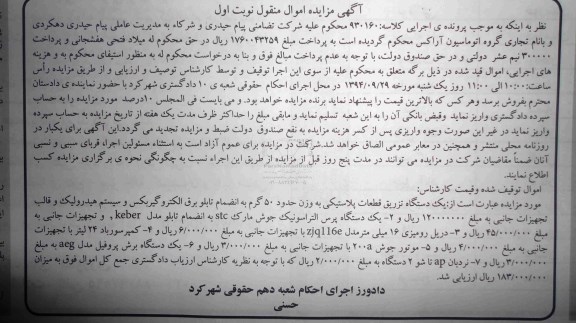 آگهی مزایده اموال منقول نوبت اول
نظر به اینکه به موجب پرونده ی اجرایی کلاسه: ۹۳۰۱۶۰ محکوم علیه شرکت تضامنی پیام حیدری و شرکاء به مدیریت عاملی پیام حیدری دهکردی
و بانام تجاری گروه اتوماسیون آراکس محکوم گردیده است به پرداخت مبلغ ۱۷۶۰۰۴۳۲۵۹ ریال در حق محکوم له میلاد فتحی هفشجانی و پرداخت
۳۰۰۰۰۰ نیم عشر دولتی و در حق صندوق دولت، با توجه به عدم پرداخت مبالغ فوق و بنا به درخواست محکوم له به منظور استیفای محکوم به و هزینه
های اجرایی، اموال قید شده در ذیل برگه متعلق به محکوم علیه از سوی این اجرا توقیف و توسط کارشناس توصیف و ارزیابی و از طریق مزایده رأس
ساعت: ۱۰:۰۰ الی ۱۱:۰۰ روز یک شنبه مورخه ۱۳۹۴/۰۹/۲۹ در محل اجرای احکام حقوقی شعبه ی ۱۰ دادگستری شهرکرد با حضور نماینده ی دادستان
محترم بفروش برسد وهر کس که بالاترین قیمت را پیشنهاد نماید برنده مزایده خواهد بود. و می بایست فی المجلس ۱۰درصد مورد مزایده را به حساب
سپرده دادگستری واریز نماید وفیش بانکی آن را به این شعبه تسلیم نماید و مابقی مبلغ را حداکثر ظرف مدت یک هفته از تاریخ مزایده به حساب سپرده
واریز نماید در غیر این صورت وجوه واریزی پس از کسر هزینه مزایده به نفع صندوق دولت ضبط و مزایده تجدید می گردد.این آگهی برای یکبار در
روزنامه محلی منتشر و همچنین در معابر عمومی الصاق خواهد شد.شرکت در مزایده برای عموم آزاد است به استثناء مسئولین اجراء، قربای سببی و نسبی
آنان ضمناً متقاضیان شرکت در مزایده می توانند در مدت پنج روز قبل از مزایده از طریق این اجراء نسبت به چگونگی نحوه ی برگزاری مزایده کسب
اطلاع نمایند.
اموال توقیف شده وقیمت کارشناس:
مورد مزایده عبارت است از:یک دستگاه تزریق قطعات پلاستیکی به وزن حدود ۵۰ گرم به انضمام تابلو برق الکتروگیربکس و سیستم هیدرولیک و قالب
تجهیزات جانبی به مبلغ ۱۲۰۰۰۰۰۰۰ ریال و ۲- یک دستگاه پرس التراسونیک جوش مارک stc به انضمام تابلو مدل keber , و تجهیزات جانبی به
مبلغ ۴۵/۰۰۰/۰۰۰ ریال و ۳- دریل رومیزی ۱۶ میلی مترمدل zjq116e با تجهیزات جانبی به مبلغ ۶/۰۰۰/۰۰۰ ریال و ۴- کمپرسورباد ۲۴ لیتر با تجهیزات
جانبی به مبلغ ۴/۰۰۰/۰۰۰ ریال و ۵- موتور جوش ۲۰۰a با تجهیزات جانبی به مبلغ ۳/۰۰۰/۰۰۰ ریال و ۶- یک دستگاه برش پروفیل مدل aeg به مبلغ
۳/۰۰۰/۰۰۰ ریال و ۷- نردبان ap تا شو ۲ دستگاه به مبلغ ۲/۰۰۰/۰۰۰ ریال که با توجه به نظریه کارشناس ارزیاب دادگستری جمع کل اموال فوق به میزان
۱۸۳/۰۰۰/۰۰۰ ریال ارزیابی شد.
دادورز اجرای احکام شعبه دهم حقوقی شهرکرد
حسنی